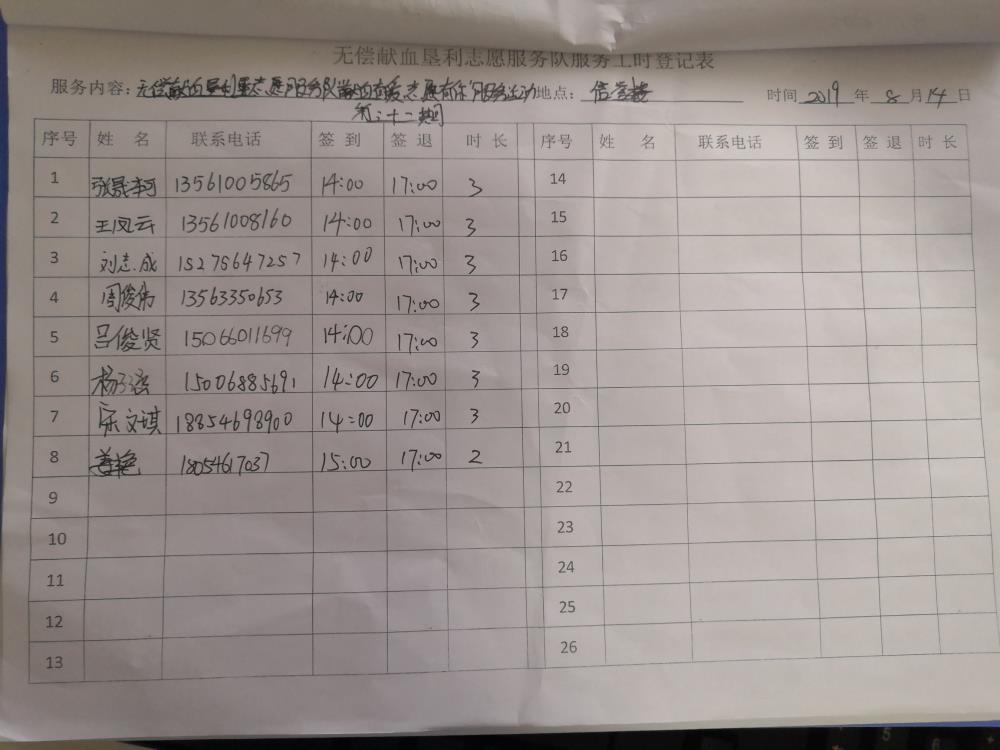 无偿献血垦利志愿服务队服务工时登记表
服务内容: 无偿献血垦利区志愿服务队 志愿有你"服务活动 地点: 信誉楼 时间 2019 年 8 月 14 日
第二十二期
序号 姓 名 联系电话 签 到 签 退 时 长 序号 姓 名 联系电话 签 到 签 退 时 长
1 张晟轲 13561005865 14:00 17:00 3 14
2 王凤云 13561008160 14:00 17:00 3 15
3 刘志成 15275647257 14:00 17:00 3 16
4 周俊伟 13563350653 14:00 17:00 3 17
5 吕俊贤 15066011699 14:00 17:00 3 18
6 杨 15006885691 14:00 17:00 3 19
7 宋文琪 18854698900 14:00 17:00 3 20
8 姜艳 18054617037 15:00 17:00 2 21
9 22
10 23
11 24
12 25
13 26